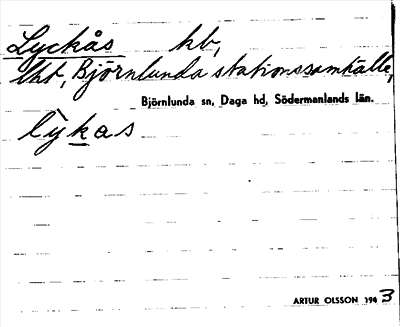 Lyckås kb,
lht, Björnlunda stationssamhälle,
Björnlunda sn, Daga hd, Södermanlands län.
lỳkas
ARTUR OLSSON 1943